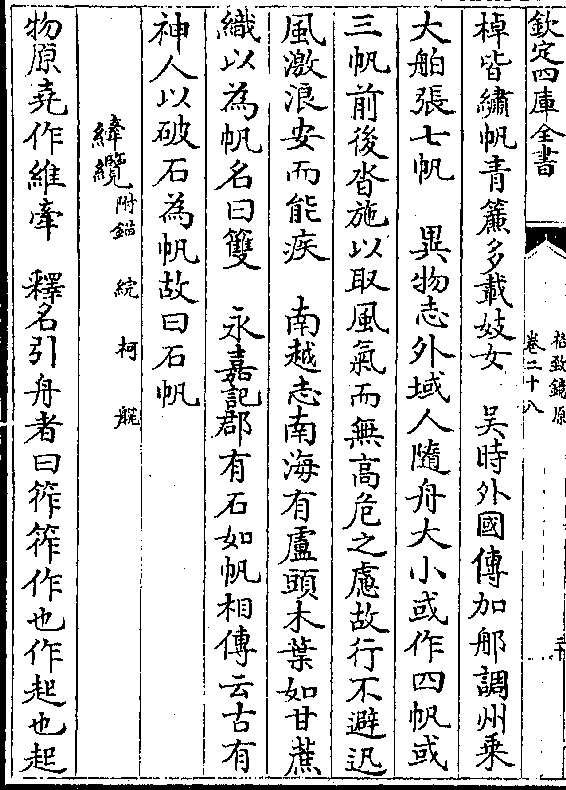 欽定四庫全書
格致鏡原
卷二十八
棹皆繡帆青簾多載妓女　吳時外國傳加郍調州乗
大舶張七帆　異物志外域人隨舟大小或作四帆或
三帆前後沓施以取風氣而無高危之慮故行不避迅
風激浪安而能疾　南越志南海有盧頭木葉如甘蔗
織以為帆名曰䉶　永嘉記郡有石如帆相傳云古有
神人以破石為帆故曰石帆
縴纜附錨 綄 柯
物原堯作維牽　釋名引舟者曰筰筰作也作起也起